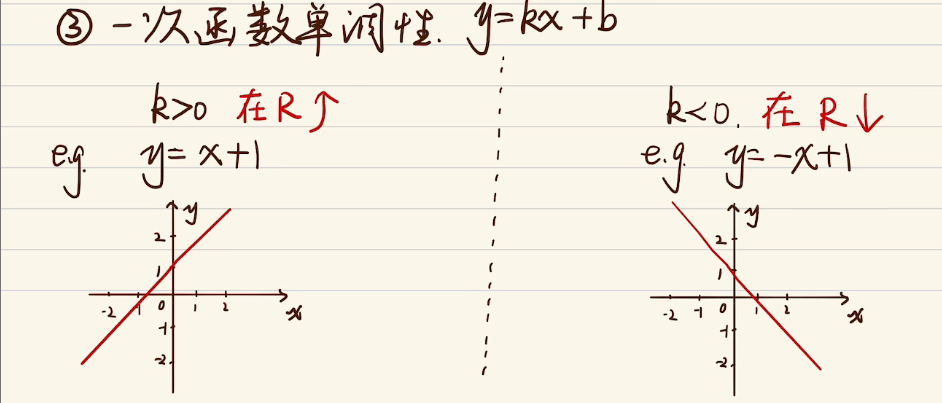 ③ 一次函数单调性. y=kx+b
k>0 在R↑
e.g. y=x+1
y
2
1
-2 -1 0 1 2 x
-1
-2
k<0. 在R↓
e.g y=-x+1
y
2
1
-2 -1 0 1 2 x
-1
-2